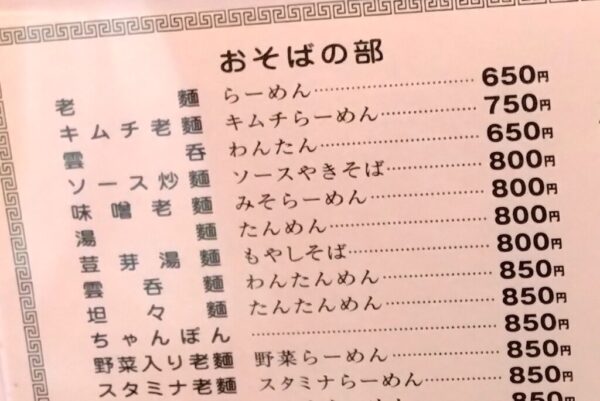 おそばの部
老麺 らーめん………………… 650円
キムチ老麺 キムチらーめん………… 750円
雲呑 わんたん………………… 650円
ソース炒麺 ソースやきそば………… 800円
味噌老麺 みそらーめん…………… 800円
湯麺 たんめん………………… 800円
荳芽湯麺 もやしそば……………… 800円
雲呑麺 わんたんめん…………… 850円
坦々麺 たんたんめん…………… 850円
ちゃんぽん ………………………… 850円
野菜入り老麺 野菜らーめん…………… 850円
スタミナ老麺 スタミナらーめん……… 850円
850円